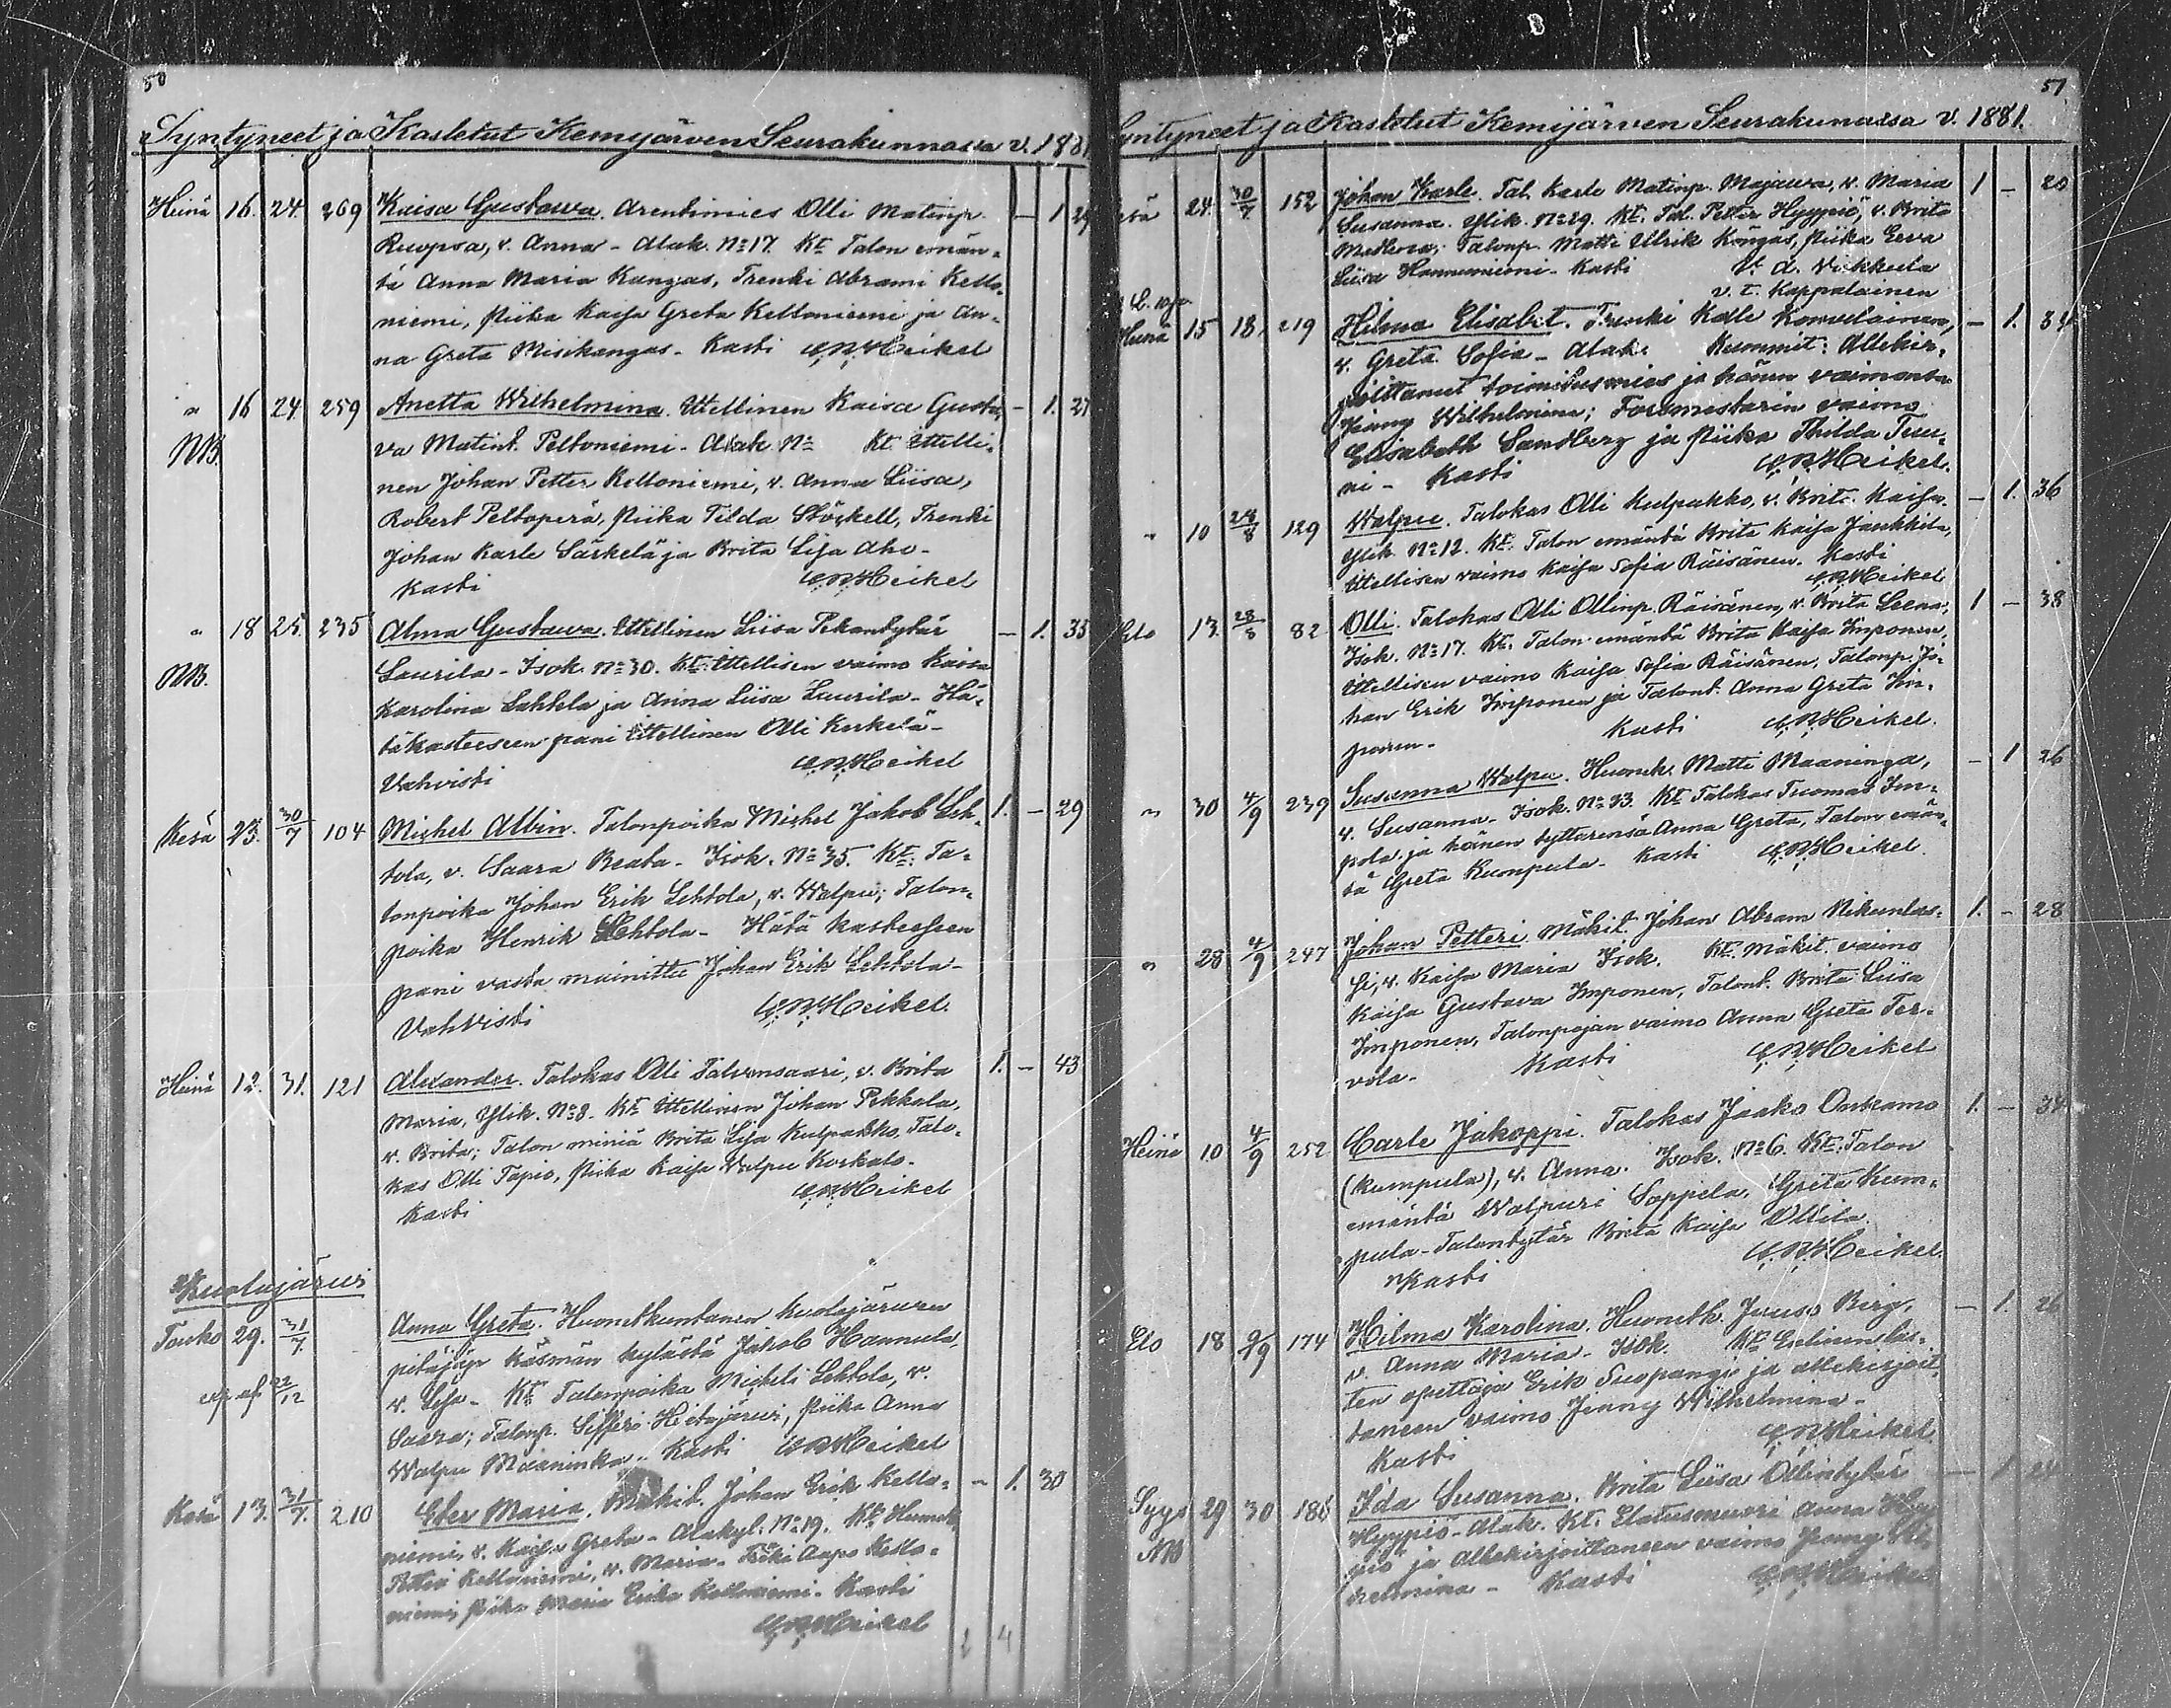 50
Syntyneet ja Kastetut Kemijärven Seurakunnassa v. 1881
Heinä 16. 24. 269 Kaisa Gustawa. Arentimies Olli Matinp. — 1 29
Ruopsa, v. Anna - Alak. No 17. Kt. Talon emän-
tä Anna Maria Kangas, Trenki Abrami Kello-
niemi, Piika Kaisa Greta Kelloniemi ja An-
na Greta Misikangas - Kasti C. N. Heikel
" 16 24 259 Anetta Wilhelmina. Ittellinen Kaisa Gusta- — 1. 27
NB. va Matint. Peltoniemi - Alak. No Kt. Ittelli-
nen Johan Petter Kelloniemi, v. Anna Liisa,
Robert Peltoperä, Piika Tilda Stöckell, Trenki
Johan Karle Särkelä ja Brita Lisa Aho -
Kasti C. N. Heikel
" 18 25. 235 Alma Gustawa. Ittellinen Liisa Pekantytär — 1. 35
NB. Laurila - Isok. No 30. Kt. Ittellisen vaimo Kaisa
Karolina Lahtela ja Anna Liisa Laurila - Hä-
täkasteeseen pani Ittellinen Olli Kerkelä -
Vahvisti C. N. Heikel
Kesä 23. 30/7 104 Michel Albin. Talonpoika Michel Jakob Leh- 1. — 29
tola, v. Saara Beata - Isok. No 35. Kt. Ta-
lonpoika Johan Erik Lehtola, v. Walpu; Talon-
poika Henrik Lehtola - Hätä kasteeseen
pani vasta mainittu Johan Erik Lehtola -
Vahvisti C. N. Heikel.
Heinä 12. 31. 121 Alexander. Talokas Olli Talvensaari, v. Brita 1. — 43
Maria, Ylik. No 8. Kt. Ittellinen Johan Pekkala,
v. Brita; Talon miniä Brita Lisa Kulpakko, Talo-
kas Olli Tapio, Piika Kaisa Walpu Korkalo.
Kasti C. N. Heikel
Kuolajärvi
Touko 29. 31/7 Anna Greta. Huonetkuntanen Kuolajärven
pitäjän Käsmän kylästä Jakob Hannula,
22/12 v. Lisa - Kt. Talonpoika Micheli Lehtola, v.
Saara; Talonp. Sifferi Hietajärvi, Piika Anna
Walpu Maaninka - Kasti C. N. Heikel
Kesä 13. 31/7. 210 Ester Maria. Mäkit. Johan Erik Kello- — 1. 30
niemi, v. Kaisa Greta - Alakyl. No 19. Kt. Huonek.
Petteri Kelloniemi, v. Maria - Trenki Aapo Kello-
niemi, Piika Maria Erika Kelloniemi - Kasti
C. N. Heikel
2 4
51
Syntyneet ja Kastetut Kemijärven Seurakunassa v. 1881.
Kesä 24. 30/7 152 Johan Karle. Tal. Karle Matinp. Majawa, v. Maria 1 — 20
Susanna. Ylik. No 29. Kt. Tal. Petter Hyypiö, v. Brita
Madleena; Talonp. Matti Ulrik Köngäs, Piika Eeva
Liisa Hannuniemi - Kasti V. A. Wikkula
v. t. Kappalainen
Heinä 15 18. 219 Hilma Elisabet. Trenki Kalle Konvelainen, — 1. 34
v. Greta Sofia - Alak. Kummit: Allekir-
joittanut toimitusmies ja hänen vaimonsa
Jenny Wilhelmina; Forsmestarin vaimo
Elisabeth Sandberg ja Piika Thilda Tuu-
ni - Kasti C. N. Heikel.
" 10 28/8 129 Walpu. Talokas Olli Kulpakko, v. Brit. Kaisa. — 1. 36
Ylik. No 12. Kt. Talon emäntä Brita Kaisa Jaukkila,
Ittellisen vaimo Kaisa Sofia Räisänen. Kasti
C. N. Heikel
Elo 13. 28/8 82 Olli. Talokas Olli Ollinp. Räisänen, v. Brita Leena, 1 — 38
Isok. No 17. Kt. Talon emäntä Brita Kaisa Imponen,
Ittellisen vaimo Kaisa Sofia Räisänen, Talonp. Jo-
han Erik Imponen ja Talont. Anna Greta Im-
ponen. Kasti C. N. Heikel.
" 30 4/9 239 Susanna Walpu. Huonek. Matti Maaninga, — 1 26
v. Susanna - Isok. No 33. Kt. Talokas Tuomas Im-
pola ja hänen tyttärensä Anna Greta, Talon emän-
tä Greta Kumpula. Kasti C. N. Heikel.
" 28 4/9 247 Johan Petteri. Mäkit. Johan Abram Nikunlas- 1. — 28
si, v. Kaisa Maria Isok. Kt. Mäkit. vaimo
Kaisa Gustava Imponen, Talont. Brita Liisa
Imponen, Talonpojan vaimo Anna Greta Ter-
vola - Kasti C. N. Heikel
Heinä 10 4/9 252 Carle Jakoppi. Talokas Jaako Onkamo 1. — 34
(Kumpula), v. Anna. Isok. No 6. Kt. Talon
emäntä Walpuri Soppela, Greta Kum-
pula - Talontytär Brita Kaisa Ollila.
Kasti C. N. Heikel
Elo 18 9/9 174 Hilma Karolina. Huonetk. Juuso Birg, — 1. 26
v. Anna Maria - Isok. Kt.
ten opettaja Erik Suopangi ja allekirjoit-
taneen vaimo Jenny Wilhelmina -
Kasti C. N. Heikel
Syys 29 30 186 Ida Susanna. Brita Liisa Ollintytär — 1 24
NB Hyypiö - Alak. Kt. Elatusmuori Anna Hyy-
piö ja allekirjoittaneen vaimo Jenny Wil-
helmina - Kasti C. N. Heikel